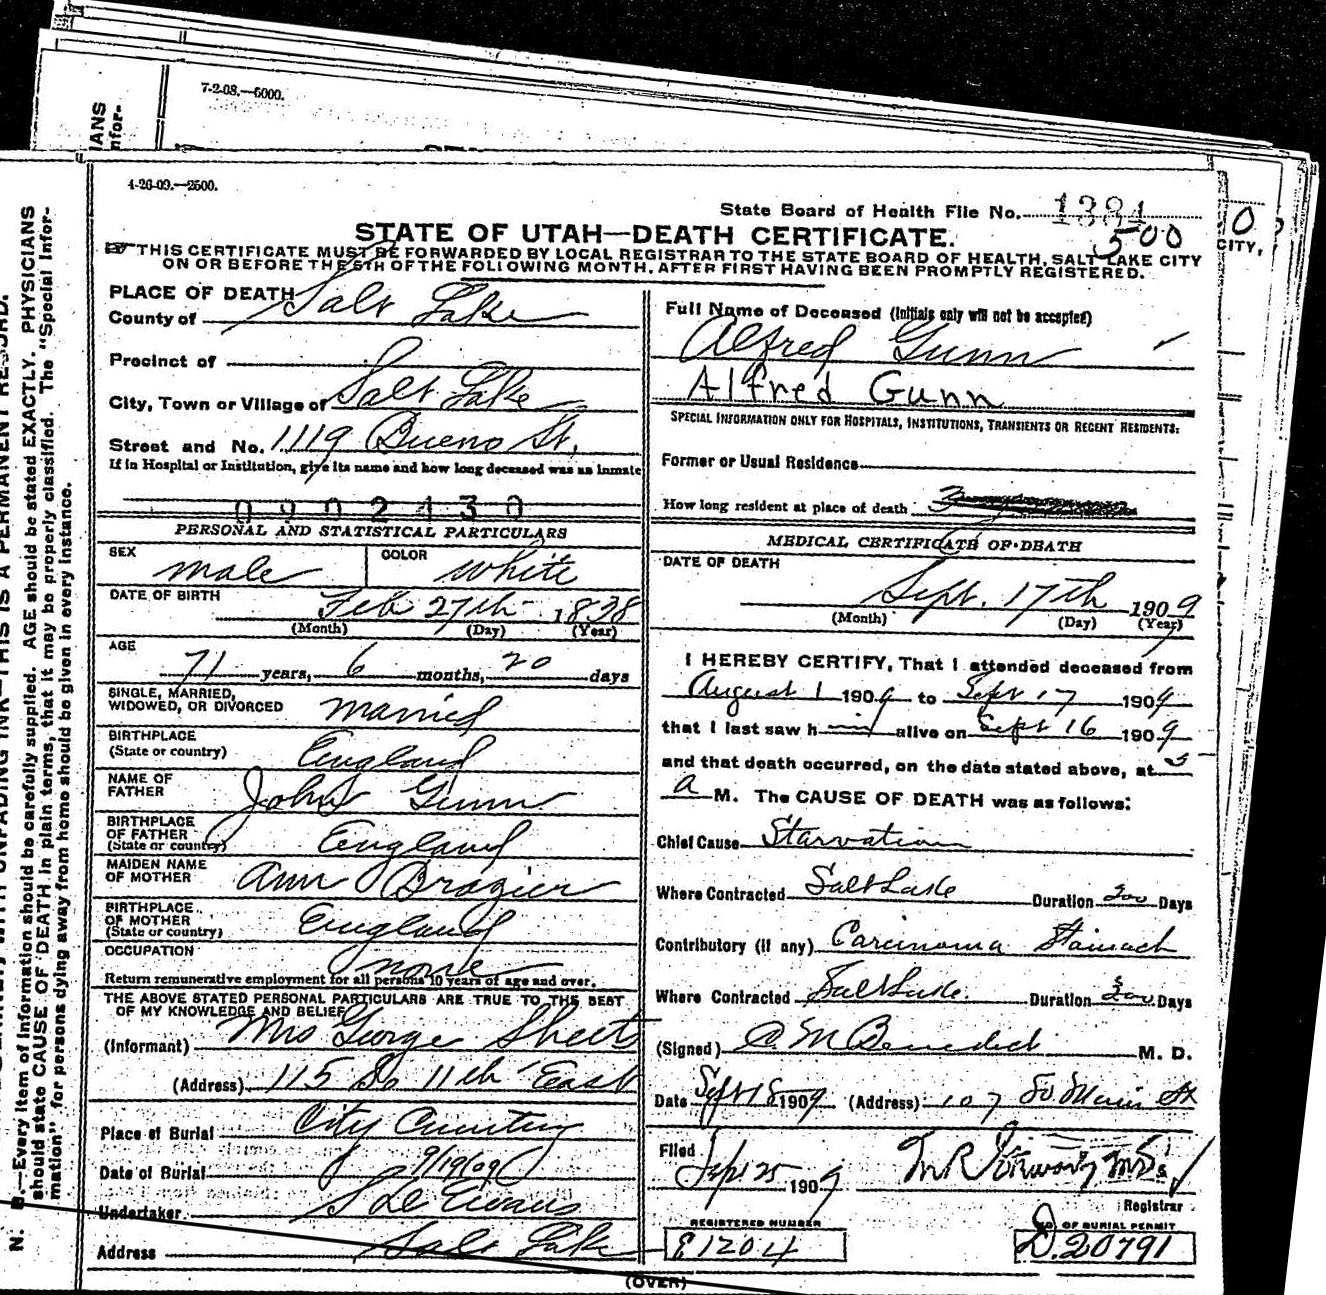 7-2-08.—5000.
ANS
nfor-
0
CITY,
4-26-09.—2500.
State Board of Health File No. 1381
500
STATE OF UTAH—DEATH CERTIFICATE.
THIS CERTIFICATE MUST BE FORWARDED BY LOCAL REGISTRAR TO THE STATE BOARD OF HEALTH, SALT LAKE CITY
ON OR BEFORE THE 5TH OF THE FOLLOWING MONTH, AFTER FIRST HAVING BEEN PROMPTLY REGISTERED.
PLACE OF DEATH
County of Salt Lake
Precinct of
City, Town or Village of Salt Lake
Street and No. 1119 Bueno St.
If in Hospital or Institution, give its name and how long deceased was an inmate
0902430
PERSONAL AND STATISTICAL PARTICULARS
SEX male COLOR white
DATE OF BIRTH Feb 27th 1838
(Month) (Day) (Year)
AGE
71 years, 6 months, 20 days
SINGLE, MARRIED,
WIDOWED, OR DIVORCED married
BIRTHPLACE
(State or country) England
NAME OF
FATHER John Gunn
BIRTHPLACE
OF FATHER
(State or country) England
MAIDEN NAME
OF MOTHER Ann Brazier
BIRTHPLACE
OF MOTHER
(State or country) England
OCCUPATION none
Return remunerative employment for all persons 10 years of age and over.
THE ABOVE STATED PERSONAL PARTICULARS ARE TRUE TO THE BEST
OF MY KNOWLEDGE AND BELIEF
(Informant) Mrs George Sheets
(Address) 115 So 11th East
Place of Burial City Cemetery
Date of Burial 9/19/09
Undertaker S D Evans
Address Salt Lake
Full Name of Deceased (Initials only will not be accepted)
Alfred Gunn
Alfred Gunn
SPECIAL INFORMATION ONLY FOR HOSPITALS, INSTITUTIONS, TRANSIENTS OR RECENT RESIDENTS:
Former or Usual Residence
How long resident at place of death 3
MEDICAL CERTIFICATE OF DEATH
DATE OF DEATH
Sept. 17th 1909
(Month) (Day) (Year)
I HEREBY CERTIFY, That I attended deceased from
August 1 1909 to Sept 17 1909
that I last saw h im alive on Sept 16 1909
and that death occurred, on the date stated above, at 5
a M. The CAUSE OF DEATH was as follows:
Chief Cause Starvation
Where Contracted Salt Lake Duration 200 Days
Contributory (if any) Carcinoma Stomach
Where Contracted Salt Lake Duration 300 Days
(Signed) C. M Benedict M. D.
Date Sept 18 1909 (Address) 107 So Main St
Filed
Sept 25 1909
Registrar
REGISTERED NUMBER
E1204
NO OF BURIAL PERMIT
D.20791
(OVER)
N. B.—Every item of information should be carefully supplied. AGE should be stated EXACTLY. PHYSICIANS
should state CAUSE OF DEATH in plain terms, that it may be properly classified. The "Special Infor-
mation" for persons dying away from home should be given in every instance.
WITH UNFADING INK—THIS IS A PERMANENT RECORD.